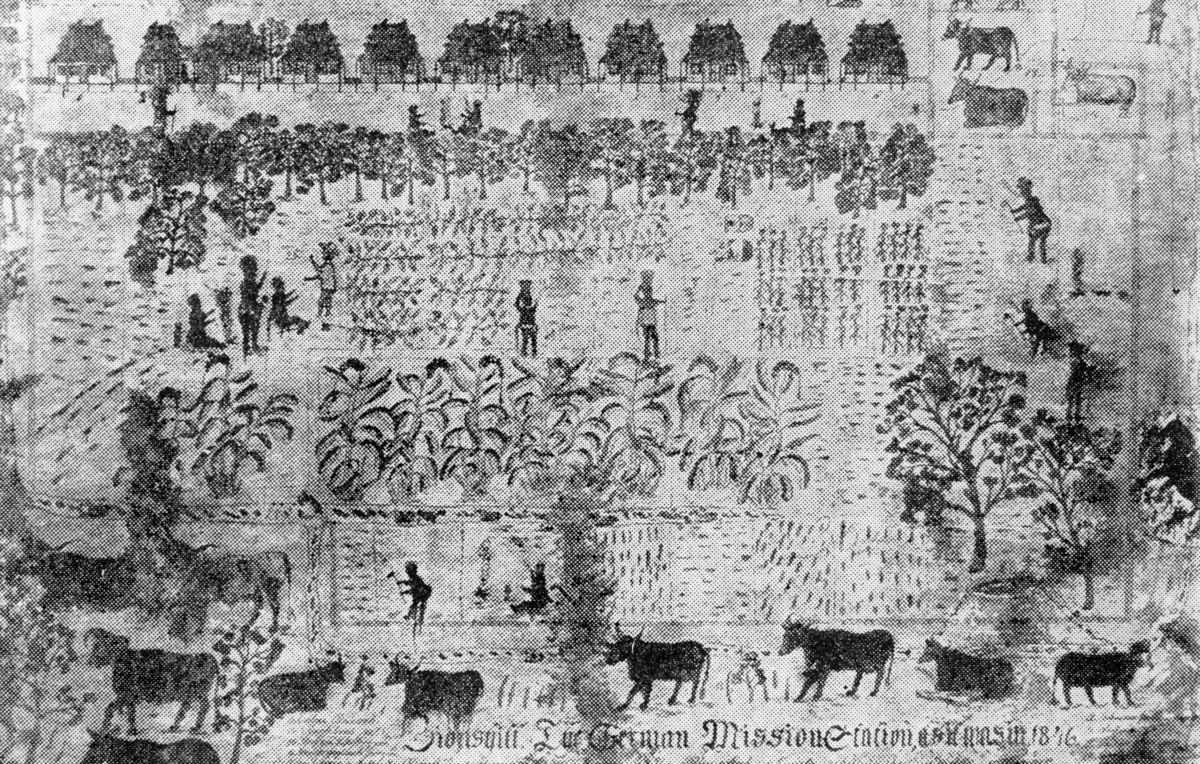 Zionshill. The German Mission Station, as it was in 1846.